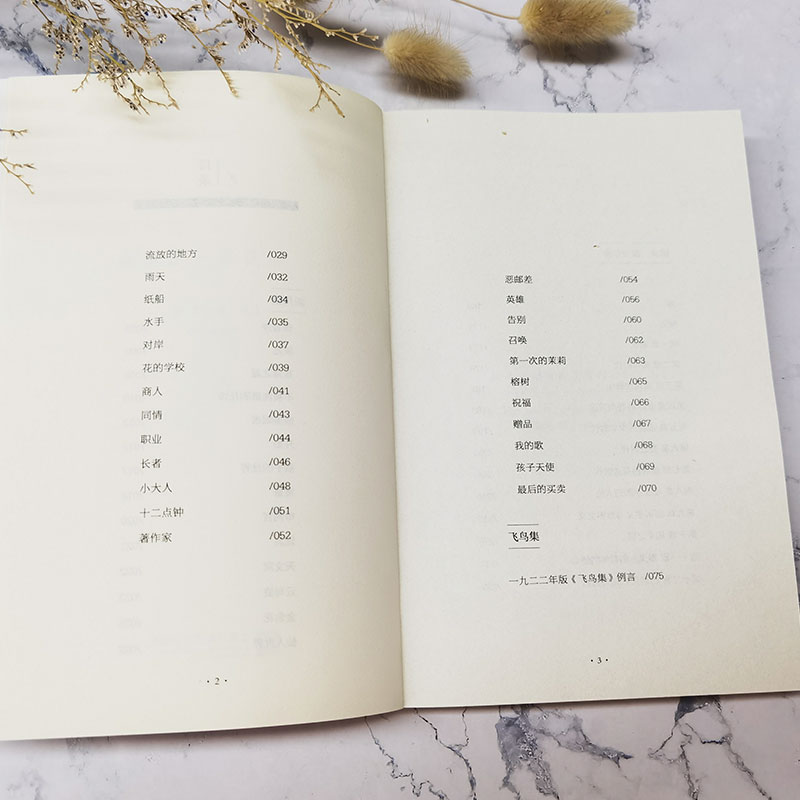 流放的地方 /029
雨天 /032
纸船 /034
水手 /035
对岸 /037
花的学校 /039
商人 /041
同情 /043
职业 /044
长者 /046
小大人 /048
十二点钟 /051
著作家 /052
· 2 ·
恶邮差 /054
英雄 /056
告别 /060
召唤 /062
第一次的茉莉 /063
榕树 /065
祝福 /066
赠品 /067
我的歌 /068
孩子天使 /069
最后的买卖 /070
飞鸟集
一九二二年版《飞鸟集》例言 /075
· 3 ·